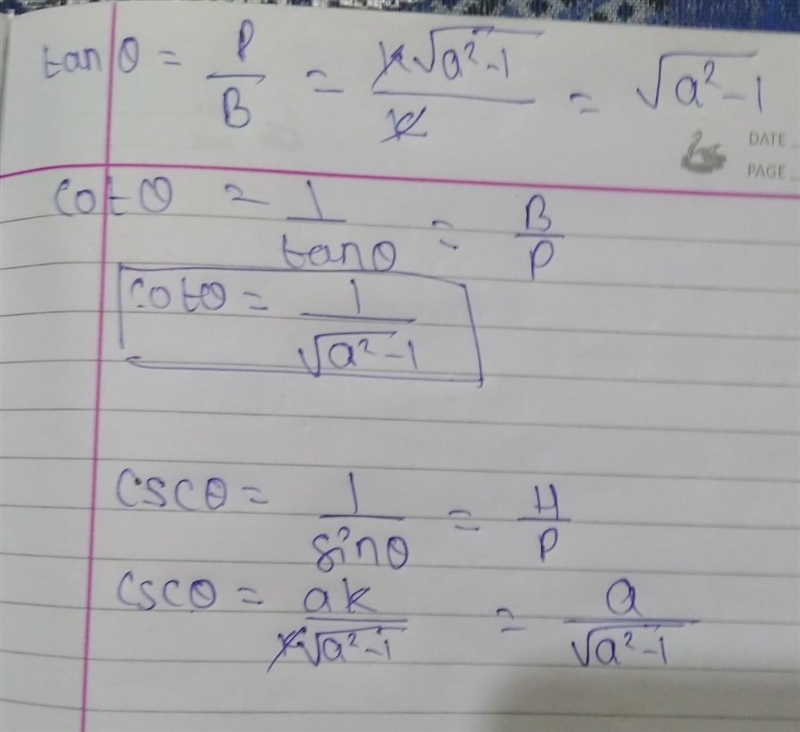 tanθ = P/B = k√(a²-1)/k = √(a²-1)
DATE
PAGE
cotθ = 1/tanθ = B/P
cotθ = 1/√(a²-1)
cscθ = 1/sinθ = H/P
cscθ = ak/k√(a²-1) = a/√(a²-1)